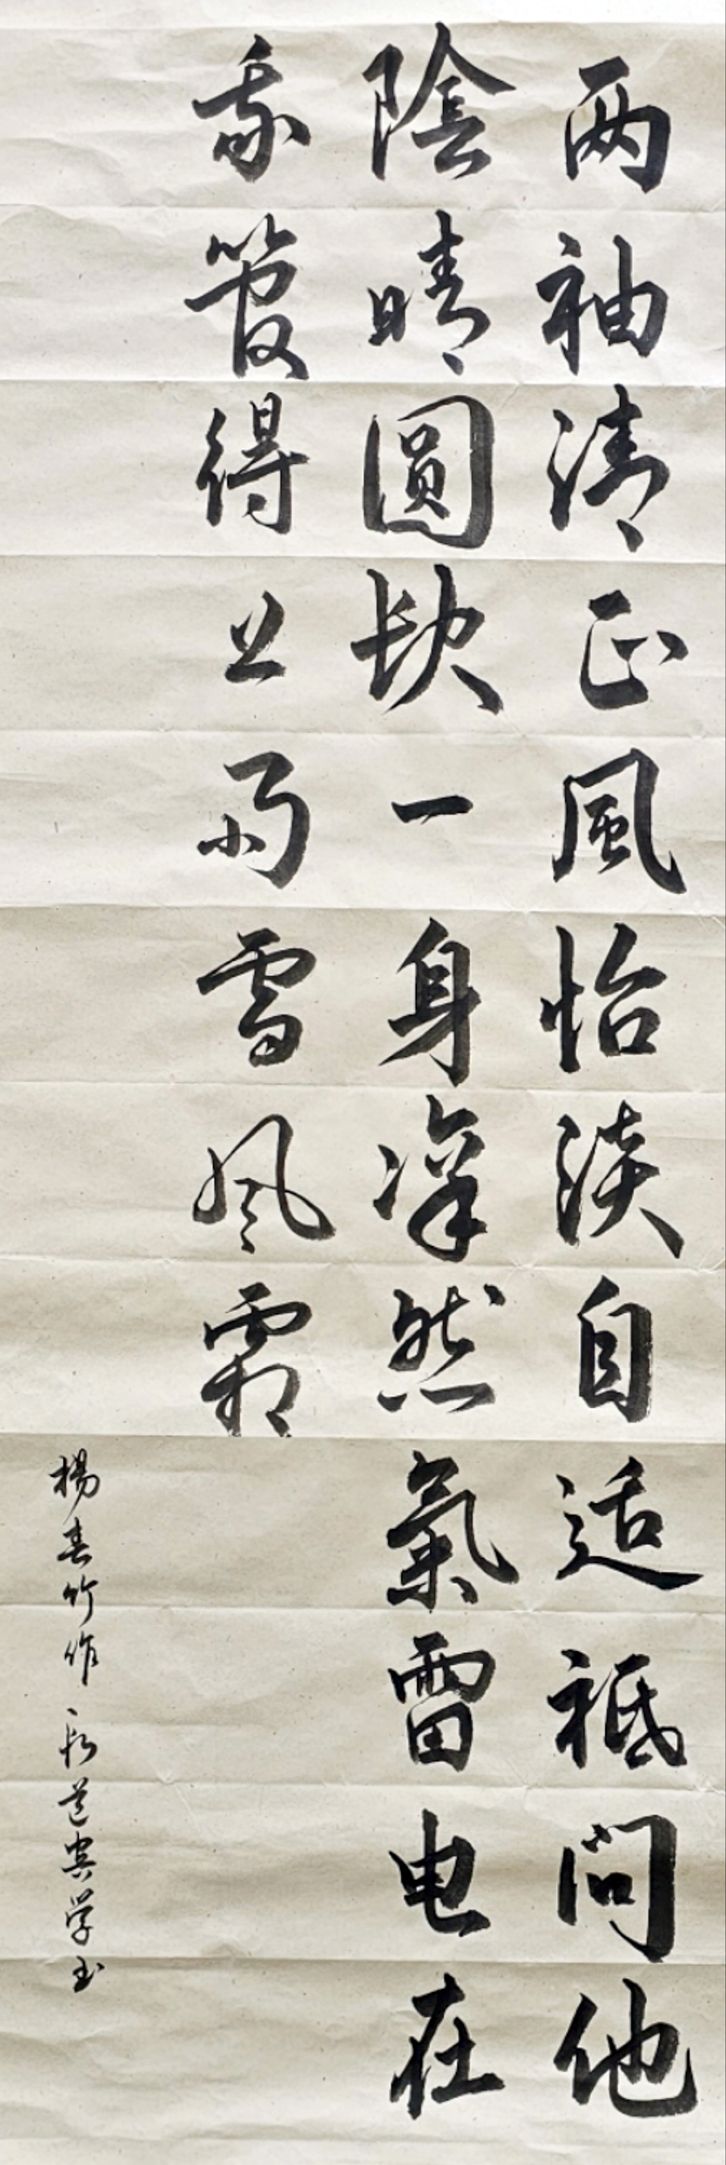 两袖清正風怡淡自适祗問他
陰晴圓缺一身凜然氣雷电在
我管得雪风霜
楊春竹作 道賓学书